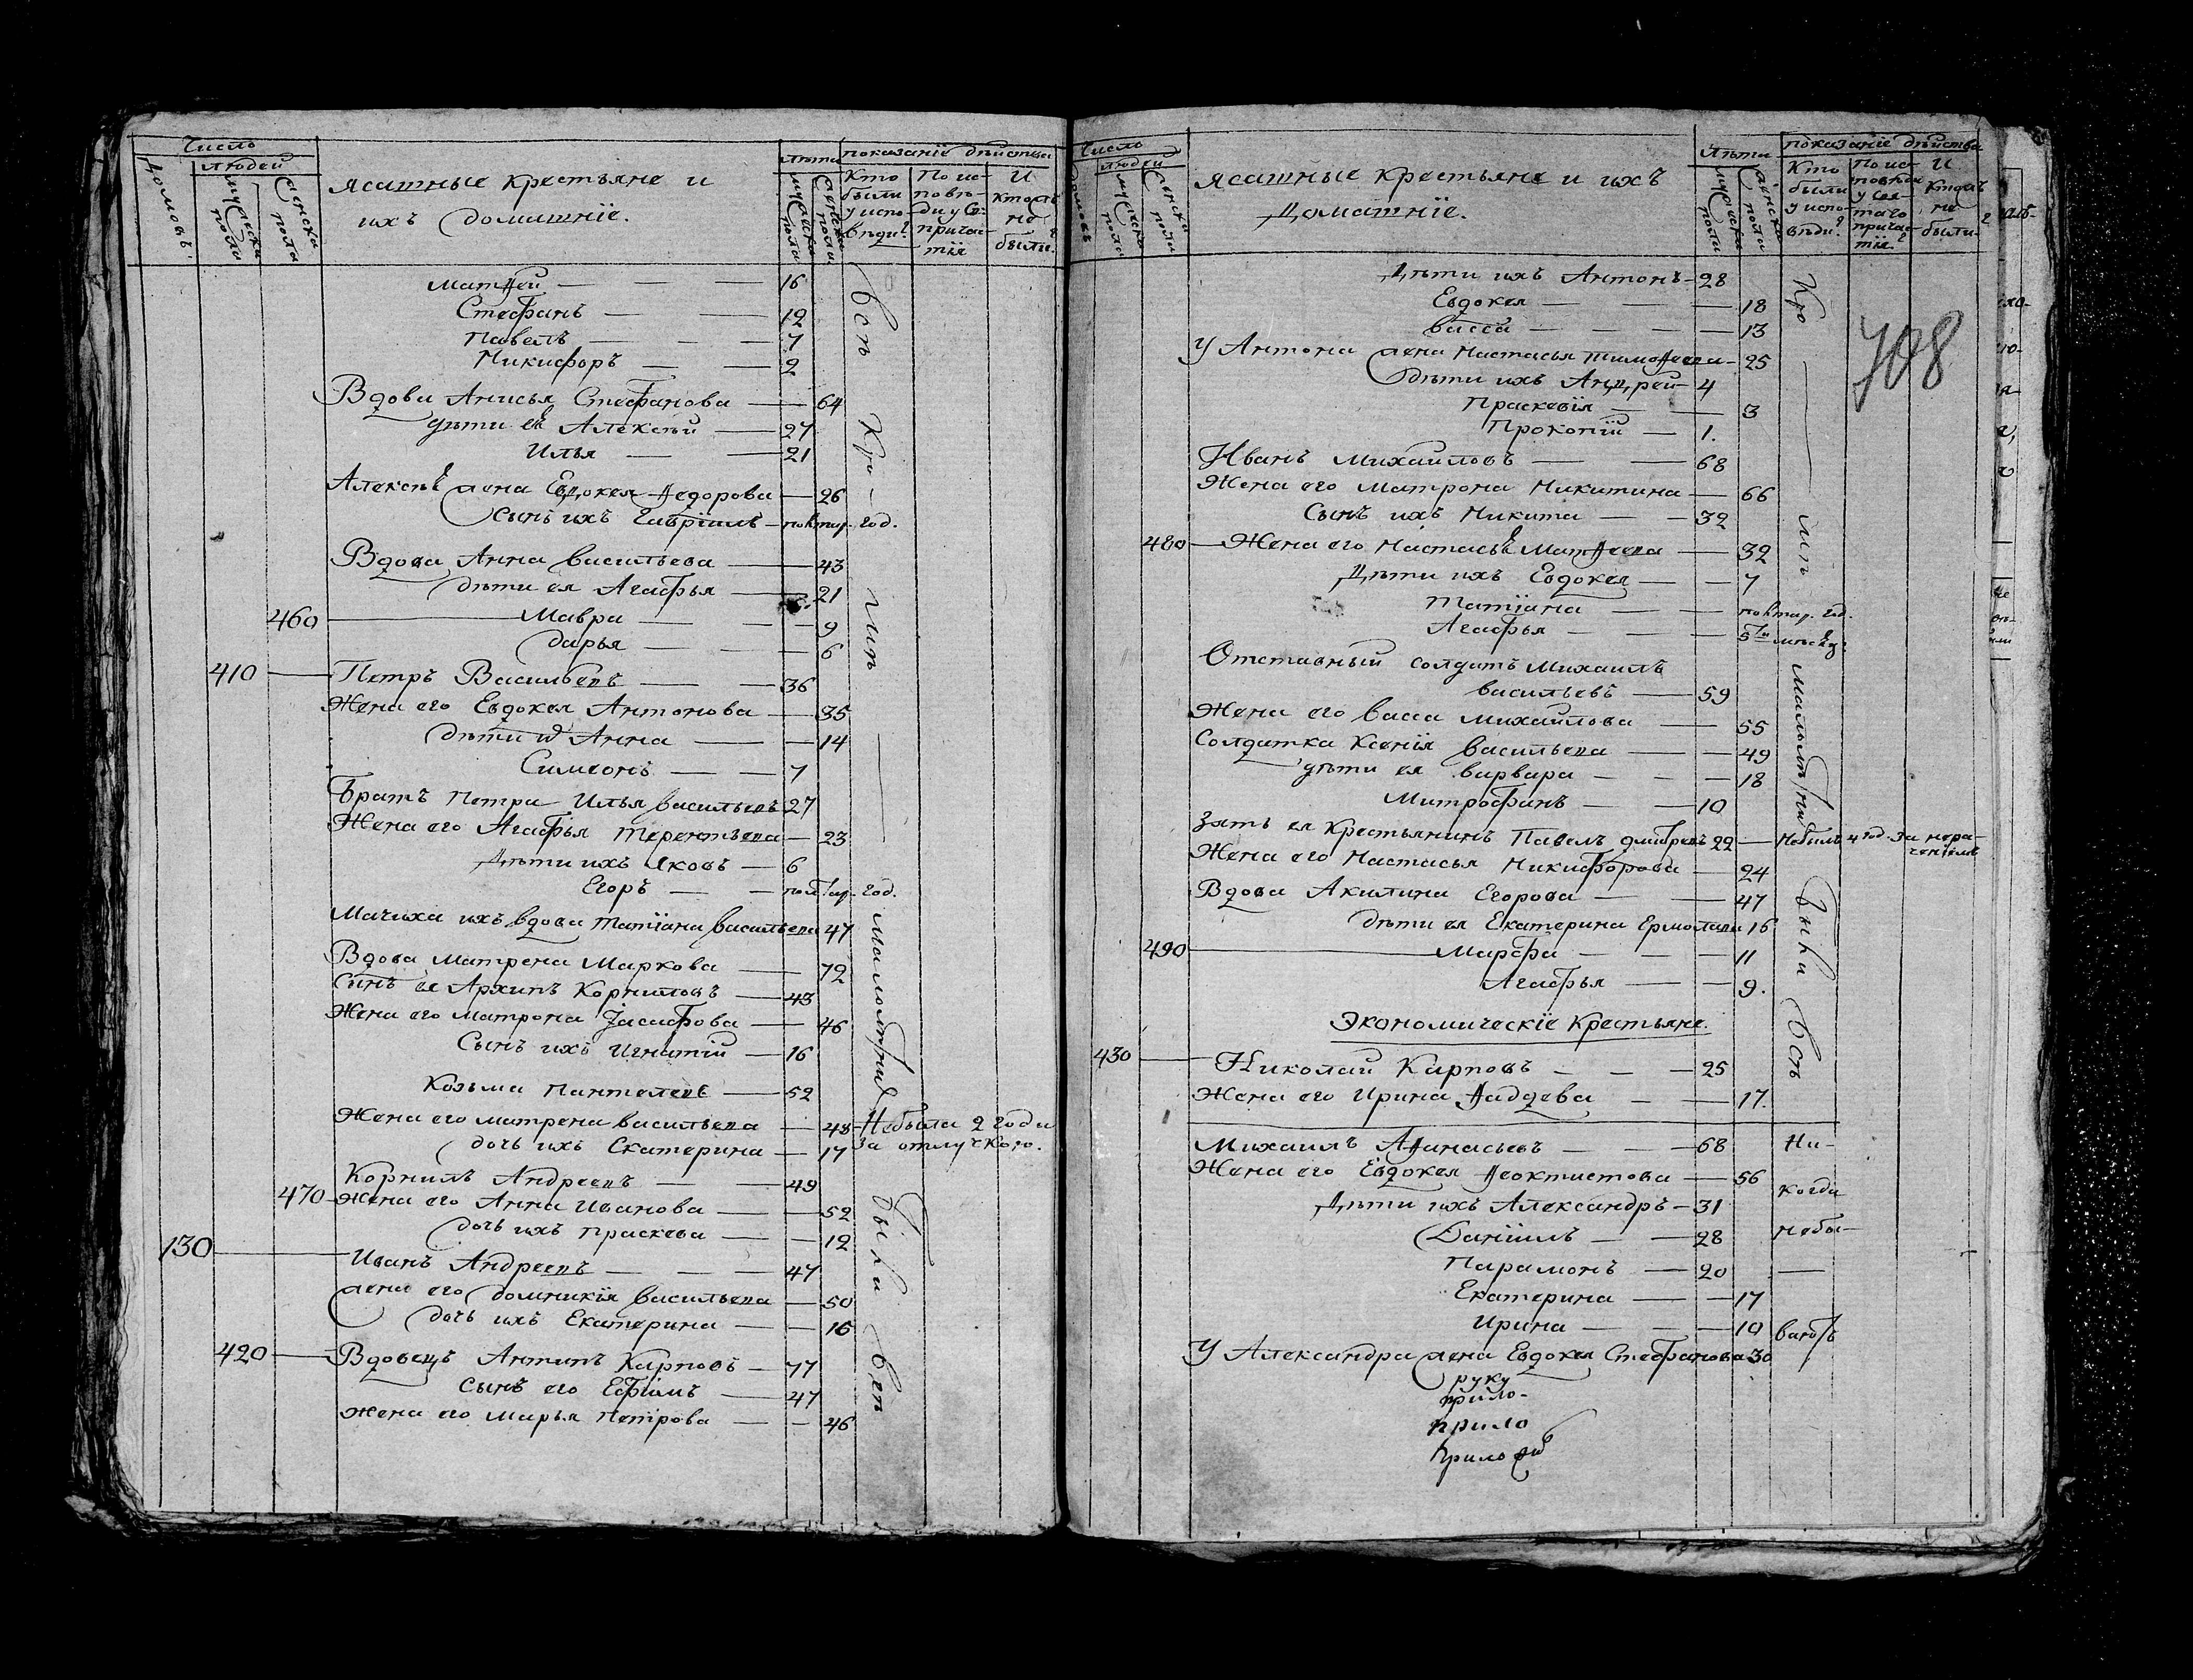 Число
людей
домовъ.
мужеска пола
женска пола
ясашные крестьяне и
ихъ домашнїе.
лѣта
мужеска пола
женска пола
показанїе дѣйства
Кто были у исповѣди?
По исповѣди у Св: причастїя
И кто жъ не были?
Матѳей — 16
Стефанъ — 12
Павелъ — 7
Никифоръ — 2
Вдова Анисья Стефанова — 64
дѣти еѣ Алексѣй — 27
Илья — 21
Алексѣѣ жена Евдокея Ѳедорова — 26
Сынъ ихъ Гаврїилъ — год.
Вдова Анна Васильева — 43
дѣти ея Агафья — 21
460 — Мавра — 9
Дарья — 6
410 — Петръ Васильевъ — 36
Жена его Евдокея Антонова — 35
дѣти Анна — 14
Симеонъ — 7
Братъ Петра Илья Васильевъ 27
Жена его Агафья Терентьева — 23
Дѣти ихъ Яковъ — 6
Егоръ — год.
Мачиха ихъ вдова Татїана Васильева 47
Вдова Матрена Маркова — 72
Сынъ ея Архипъ Корниловъ — 43
Жена его Матрона Іасафова — 46
Сынъ ихъ Игнатїй — 16
Козьма Пантелеевъ — 52
Жена его матрена васильева — 48 — Небыла 2 года
дочь ихъ Екатерина — 17 за отлучкою.
Корнилъ Андреевъ — 49
470 — Жена его Анна Иванова — 52
дочь ихъ праскева — 12
130 — Иванъ Андреевъ — 47
жена его домникїя васильева — 50
дочь ихъ Екатерина — 16
420 — Вдовецъ Антипъ Карповъ — 77
Сынъ его Ефимъ — 47
Жена его Марья Петрова — 46
всѣ Кро- мѣ малолѣтныхъ были всѣ
Число
людей
домовъ
мужеска пола
женска пола
ясашные крестьяне и ихъ
Домашнїе.
лѣта
мужеска пола
женска пола
показанїе дѣйства
Кто были у исповѣди?
По исповѣди у Святаго причастїя?
И кто жъ не были?
708
Дѣти ихъ Антонъ — 28
Евдокея — 18
Васса — 13
У Антона жена Настасья Тимоѳеева — 25
дѣти ихъ Андрей — 4
Праскевїя — 3
Прокопїй — 1.
Иванъ Михаиловъ — 68
Жена его Матрона Никитина — 66
Сынъ ихъ Никита — 32
480 — Жена его Настасьѣ Матѳеева — 32
Дѣти ихъ Евдокея — 7
Татїана — год.
Агафья — 5
Отставный солдатъ Михаилъ
васильевъ — 59
Жена его Васса михайлова — 55
Солдатка Ксенїя Васильева — 49
дѣти ея варвара — 18
Митрофанъ — 10
Зять ея крестьянинъ Павелъ 22 — Небылъ 4 год. за нера-
ченїемъ
Жена его Настасья Никифорова — 24
Вдова Акилина Егорова — 47
дѣти ея Екатерина Ермолаева 16
490 — Марфа — 11
Агафья — 9.
Экономическїе крестьяне.
430 — Николай Карповъ — 25
Жена его Ирина Ѳаддева — 17.
Кро — мѣ малолѣтныхъ были всѣ
Михаилъ Аѳанасьевъ — 68 Ни-
Жена его Евдокея Ѳеоктистова — 56 когда
Дѣти ихъ Александръ — 31
Данїилъ — 28 небы-
Парамонъ — 20 —
Екатерина — 17
Ирина — 10
У Александра жена Евдокея Стефанова 30
руку
прило-
прило